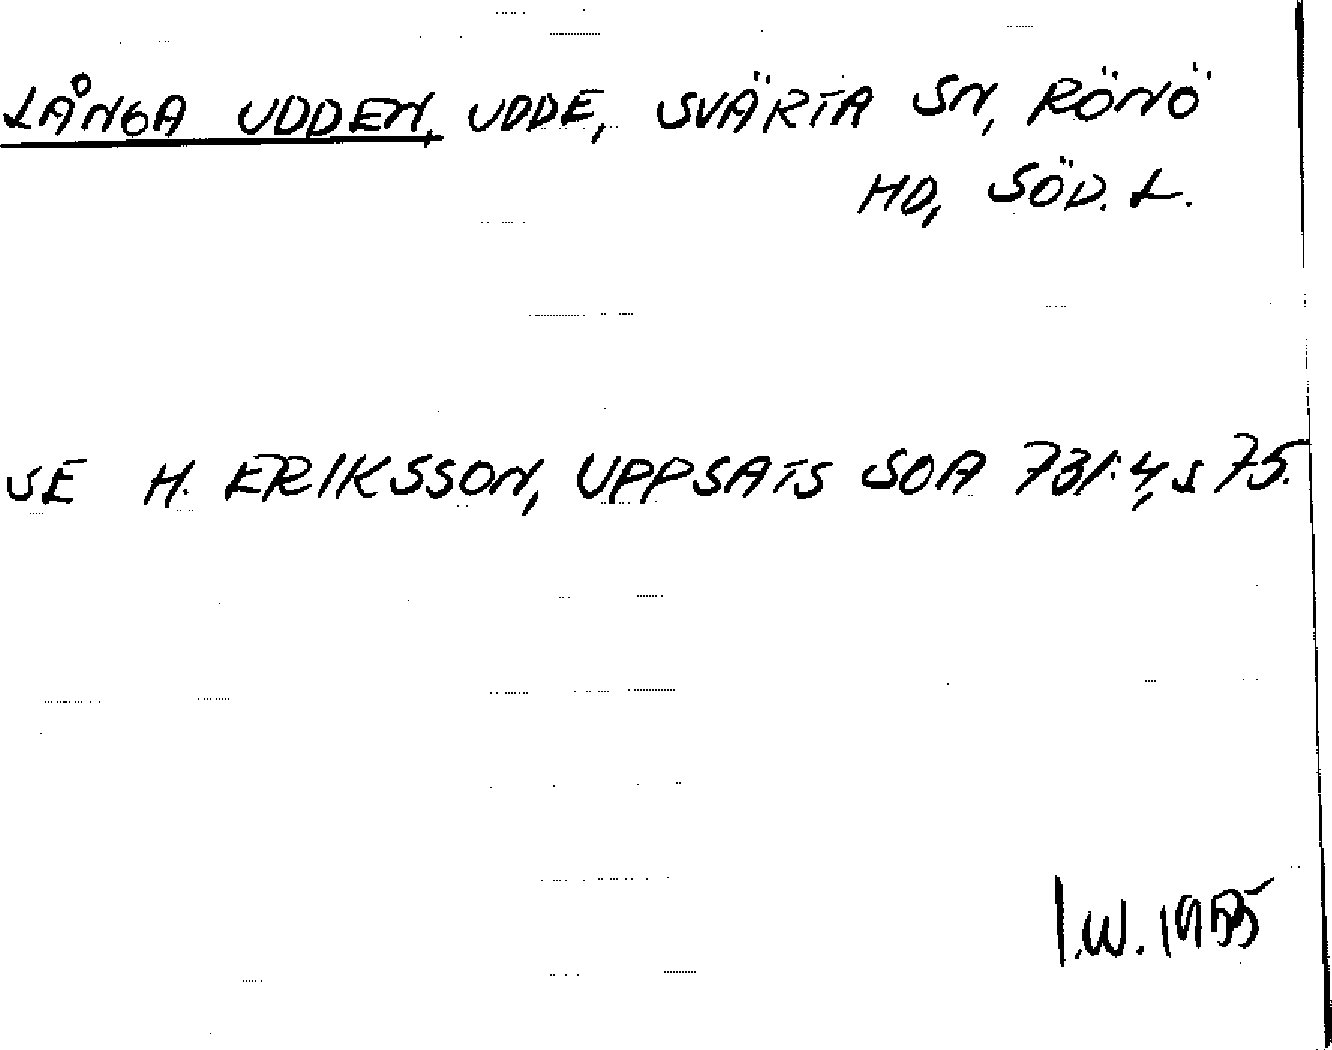 LÅNGA UDDEN, UDDE, SVÄRTA SN, RÖNÖ
HD, SÖD. L.
SE H. ERIKSSON, UPPSATS SOA 731:4, S 75.
I.W.